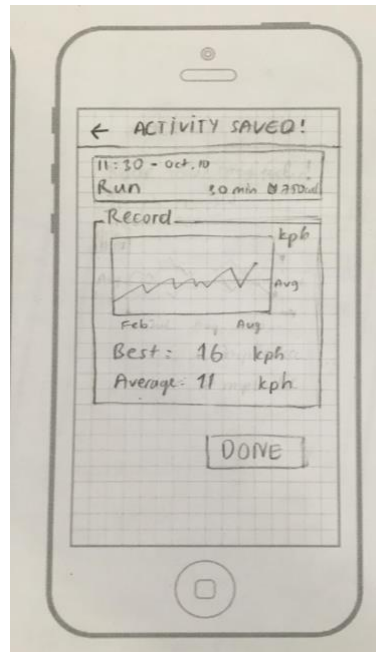 ← ACTIVITY SAVED!
11:30 - Oct. 10
Run 30 min 750cal
Record
kph
Avg
Feb Aug
Best: 16 kph
Average: 11 kph
DONE